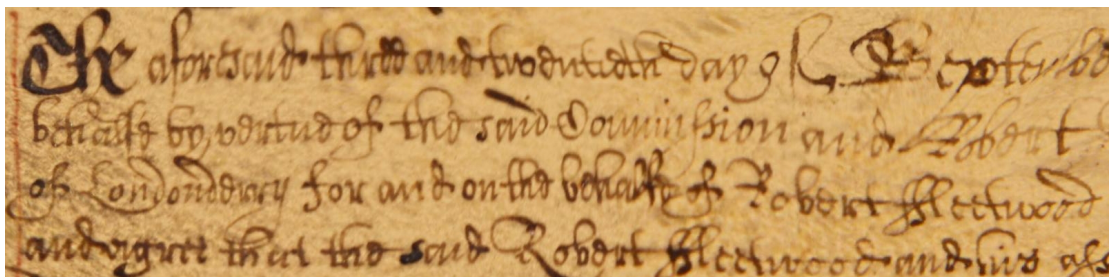 The aforesaid three and twentieth day of September
behalfe by vertue of the said Commission and Robert
of Londonderry for and on the behalfe of Robert ffleetwood
and agree that the said Robert ffleetwood and his